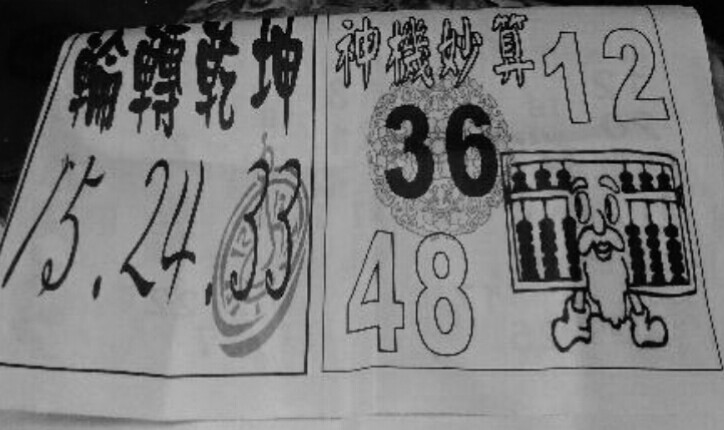 輪轉乾坤
15.24.33
神機妙算
12
36
48